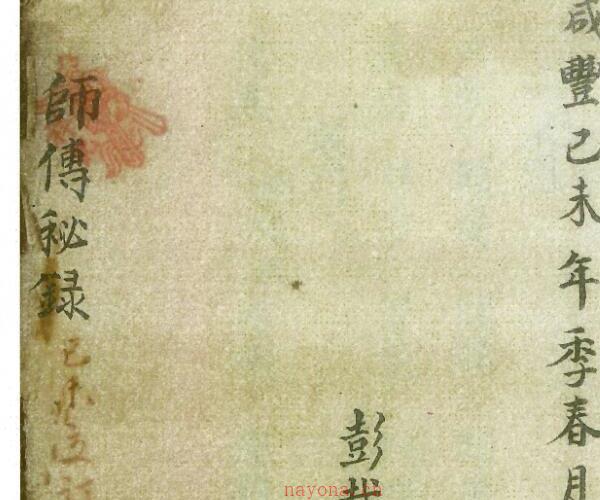 咸豐己未年季春月
彭
師傳秘録
己未
nayona.cn